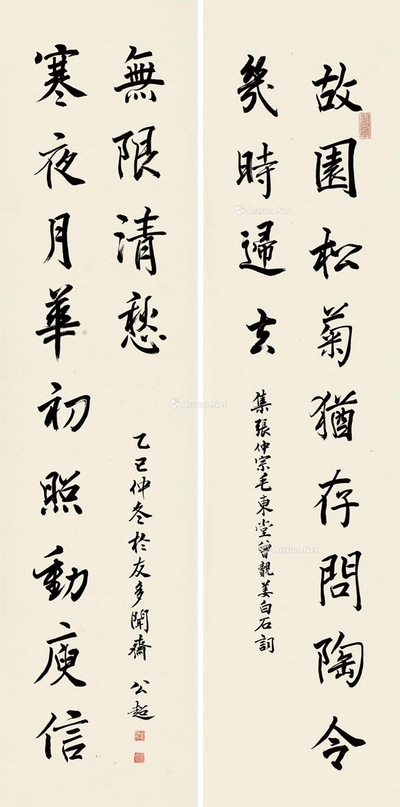 故園松菊猶存問陶令
幾時歸去
集張仲宗毛東堂曾覿姜白石詞
寒夜月華初照動庾信
無限清愁
乙巳仲冬於友多聞齋 公超
Artron.Net
Artron.Net
Artron.Net